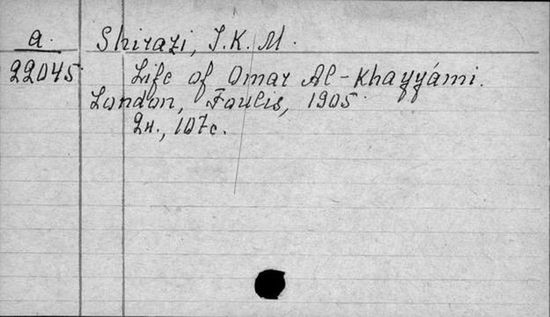 a. Shirazi, J. K. M.
22045 Life of Omar Al-Khayyámi.
London, Foulis, 1905.
2н., 107с.